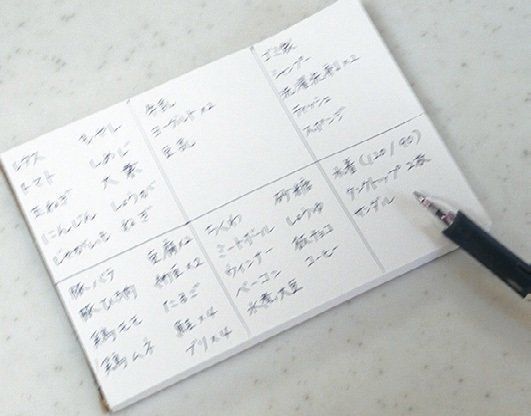 レタス もやし
トマト しめじ
玉ねぎ 大葉
にんじん しょうが
じゃがいも ねぎ
牛乳
ヨーグルト×2
豆乳
ゴミ袋
シャンプー
洗濯洗剤×2
ティッシュ
スポンジ
豚バラ 豆腐×2
豚ひき肉 納豆×2
鶏モモ たまご
鶏ムネ 鮭×4
ブリ×4
ちくわ 砂糖
ミートボール しょうゆ
ウィンナー 板チョコ
ベーコン コーヒー
水煮大豆
水着(120/90)
タンクトップ 2枚
サンダル